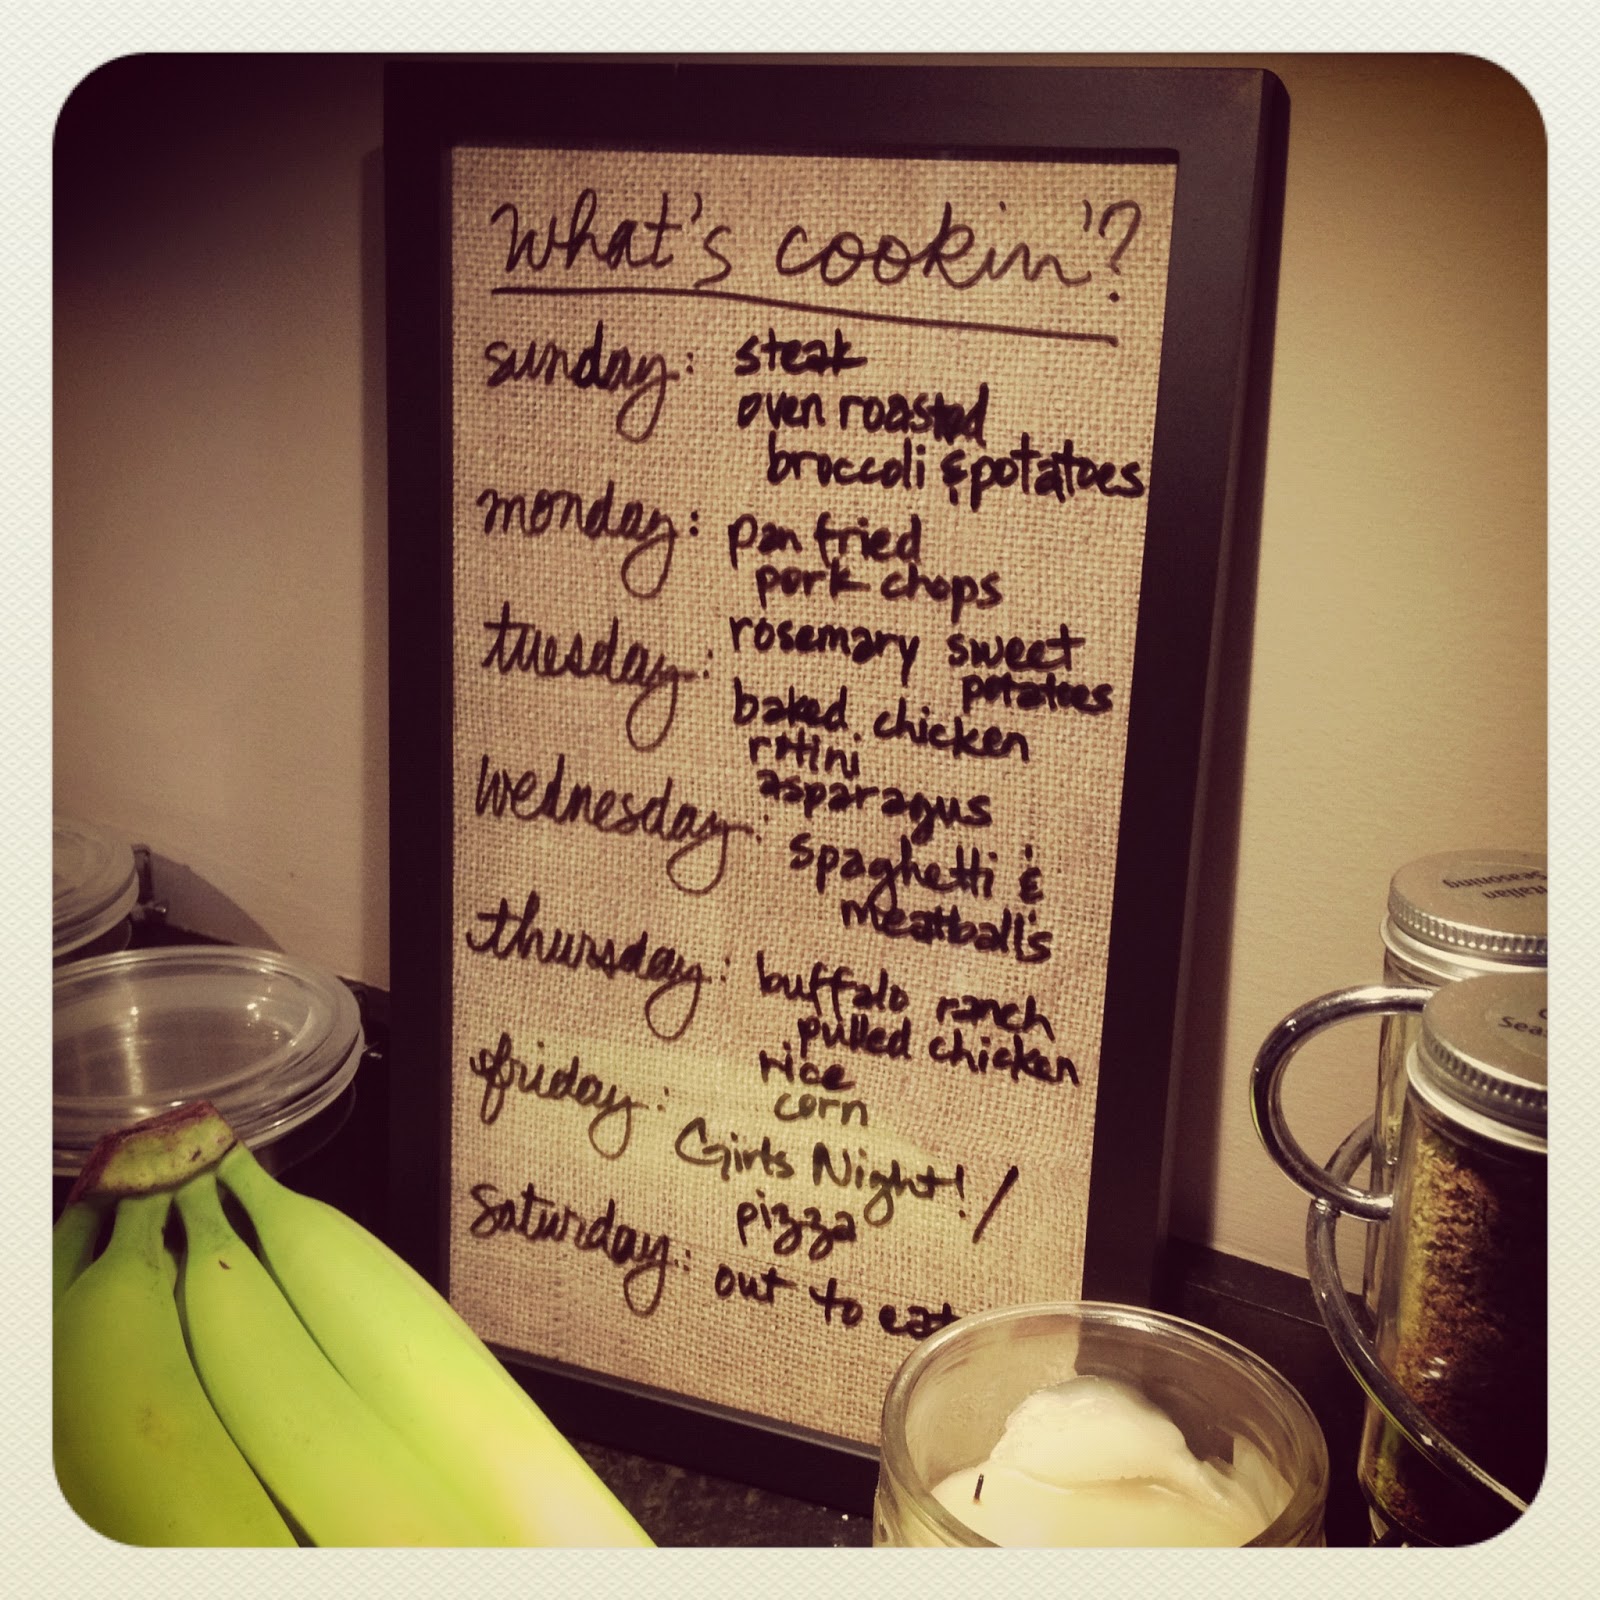 What's cookin'?
sunday: steak
oven roasted
broccoli & potatoes
monday: pan fried
pork chops
rosemary sweet
potatoes
tuesday: baked chicken
rotini
asparagus
wednesday: spaghetti &
meatballs
thursday: buffalo ranch
pulled chicken
rice
corn
friday: Girls Night! /
pizza
saturday: out to eat
Italian
Seasoning